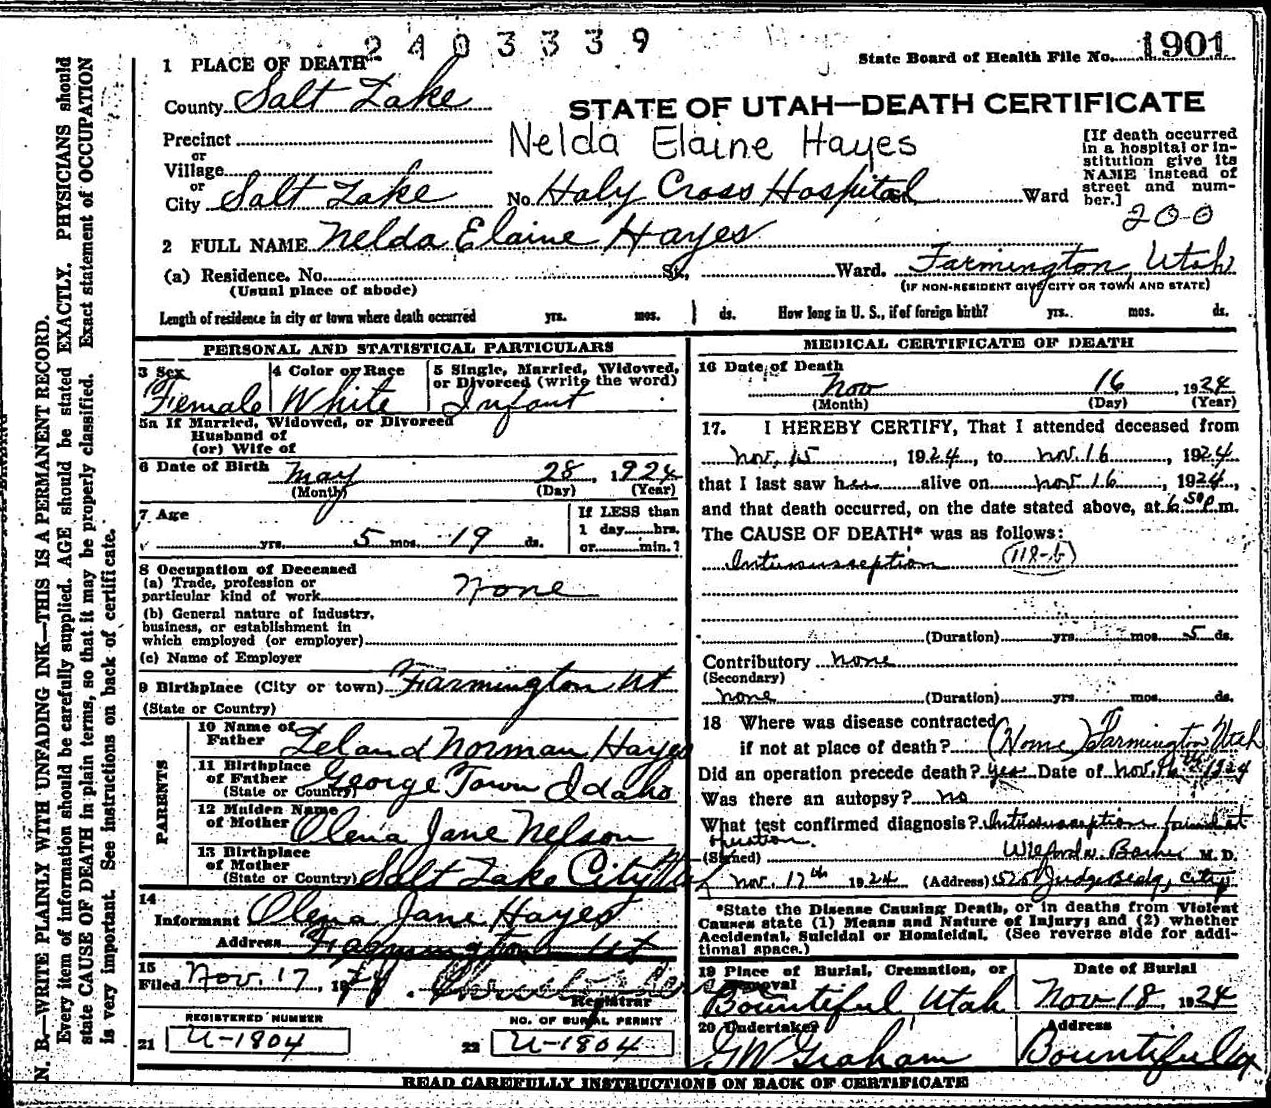 2403339
State Board of Health File No. 1901
1 PLACE OF DEATH
County Salt Lake
STATE OF UTAH—DEATH CERTIFICATE
Precinct
or
Village
or
City Salt Lake
Nelda Elaine Hayes
No. Holy Cross Hospital St. Ward
[If death occurred
in a hospital or in-
stitution give its
NAME instead of
street and num-
ber.]
200
2 FULL NAME Nelda Elaine Hayes
(a) Residence. No. St., Ward. Farmington, Utah
(Usual place of abode)
(IF NON-RESIDENT GIVE CITY OR TOWN AND STATE)
Length of residence in city or town where death occurred yrs. mos. 1 ds. How long in U. S., if of foreign birth? yrs. mos. ds.
N. B.—WRITE PLAINLY WITH UNFADING INK—THIS IS A PERMANENT RECORD.
Every item of information should be carefully supplied. AGE should be stated EXACTLY. PHYSICIANS should
state CAUSE OF DEATH in plain terms, so that it may be properly classified. Exact statement of OCCUPATION
is very important. See instructions on back of certificate.
PERSONAL AND STATISTICAL PARTICULARS
3 Sex
Female
4 Color or Race
White
5 Single, Married, Widowed,
or Divorced (write the word)
Infant
5a If Married, Widowed, or Divorced
Husband of
(or) Wife of
6 Date of Birth May 28, 1924
(Month) (Day) (Year)
7 Age
yrs. 5 mos. 19 ds.
If LESS than
1 day hrs.
or min.?
8 Occupation of Deceased
(a) Trade, profession or
particular kind of work None
(b) General nature of industry,
business, or establishment in
which employed (or employer)
(c) Name of Employer
9 Birthplace (City or town) Farmington Ut
(State or Country)
PARENTS
10 Name of
Father Leland Norman Hayes
11 Birthplace
of Father George Town Idaho
(State or Country)
12 Maiden Name
of Mother Olena Jane Nelson
13 Birthplace
of Mother
(State or Country) Salt Lake City Ut
14
Informant Olena Jane Hayes
Address Farmington Ut
15
Filed Nov. 17, 1924
Registrar
REGISTERED NUMBER
21 U-1804
NO. OF BURIAL PERMIT
22 U-1804
MEDICAL CERTIFICATE OF DEATH
16 Date of Death
Nov 16, 1924
(Month) (Day) (Year)
17. I HEREBY CERTIFY, That I attended deceased from
Nov. 15, 1924, to Nov. 16, 1924
that I last saw her alive on Nov. 16, 1924,
and that death occurred, on the date stated above, at 6:50 p.m.
The CAUSE OF DEATH* was as follows:
Intussusception (118-b)
(Duration) yrs. mos. 5 ds.
Contributory none
(Secondary)
none (Duration) yrs. mos. ds.
18 Where was disease contracted
if not at place of death? (Home) Farmington Utah
Did an operation precede death? yes Date of Nov. 16th 1924
Was there an autopsy? no
What test confirmed diagnosis? Intussusception found at
operation.
(Signed) M. D.
Nov. 17th 1924 (Address) Judge Bldg, City
*State the Disease Causing Death, or in deaths from Violent
Causes state (1) Means and Nature of Injury; and (2) whether
Accidental, Suicidal or Homicidal. (See reverse side for addi-
tional space.)
19 Place of Burial, Cremation, or
Removal
Bountiful, Utah
Date of Burial
Nov 18, 1924
20 Undertaker
GW Graham
Address
Bountiful
READ CAREFULLY INSTRUCTIONS ON BACK OF CERTIFICATE